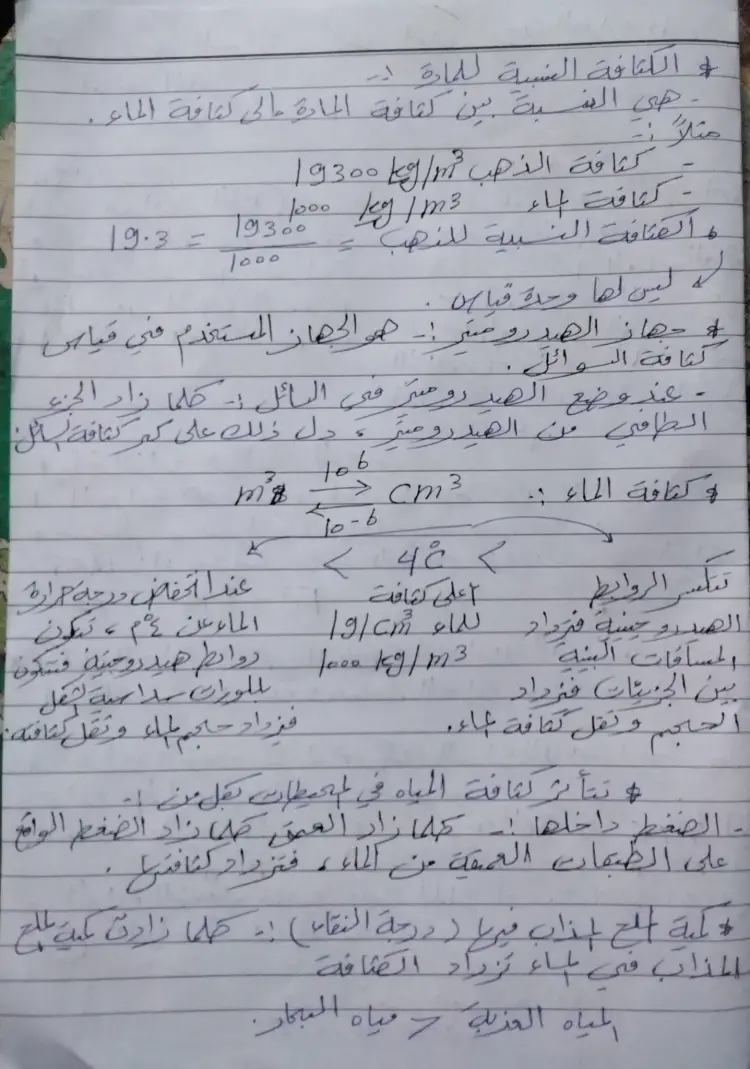 * الكثافة النسبية للمادة :-
- هي النسبة بين كثافة المادة إلى كثافة الماء .
مثلاً :-
- كثافة الذهب 19300 kg/m³
- كثافة الماء 1000 kg/m³
الكثافة النسبية للذهب = 19300/1000 = 19.3
ليس لها وحدة قياس .
* جهاز الهيدروميتر :- هو الجهاز المستخدم في قياس
كثافة السوائل .
- عند وضع الهيدروميتر في السائل :- كلما زاد الجزء
الطافي من الهيدروميتر ، دل ذلك على كبر كثافة السائل
* كثافة الماء :- m³ ⇄ cm³ 10⁶ 10-6
< 4°C <
تنكسر الروابط
الهيدروجينية فتزداد
المسافات البينية
بين الجزيئات فتزداد
الحجم وتقل كثافة الماء.
أعلى كثافة
للماء 1g/cm³
1000 kg/m³
عند انخفاض درجة حرارة
الماء عن 4°م ، تتكون
روابط هيدروجينية فتتكون
بلورات سداسية الشكل
فيزداد حجم الماء وتقل كثافته.
* تتأثر كثافة المياه في المحيطات بكل من :-
- الضغط داخلها :- كلما زاد العمق كلما زاد الضغط الواقع
على الطبقات العميقة من الماء ، فتزداد كثافتها .
* كمية الملح المذاب فيها (درجة النقاء) :- كلما زادت كمية الملح
المذاب في الماء تزداد الكثافة
المياه العذبة < مياه البحار.